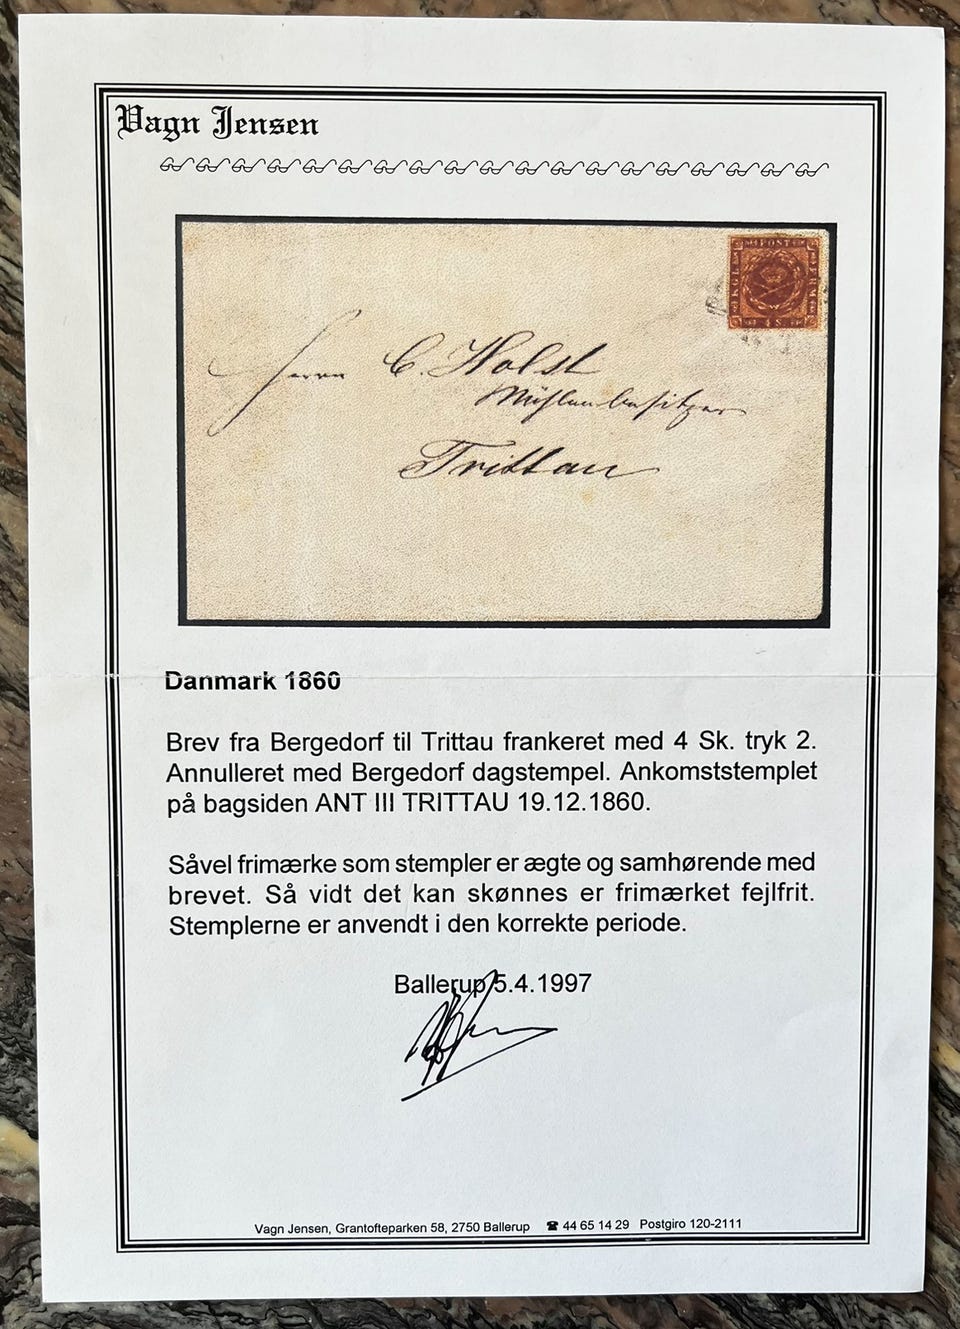 Vagn Jensen
KGL POST FRM
4 S
Herrn C. Holst
Mühlenbesitzer
Trittau
Danmark 1860
Brev fra Bergedorf til Trittau frankeret med 4 Sk. tryk 2.
Annulleret med Bergedorf dagstempel. Ankomststemplet
på bagsiden ANT III TRITTAU 19.12.1860.
Såvel frimærke som stempler er ægte og samhørende med
brevet. Så vidt det kan skønnes er frimærket fejlfrit.
Stemplerne er anvendt i den korrekte periode.
Ballerup 5.4.1997
Vagn Jensen, Grantofteparken 58, 2750 Ballerup ☎ 44 65 14 29 Postgiro 120-2111